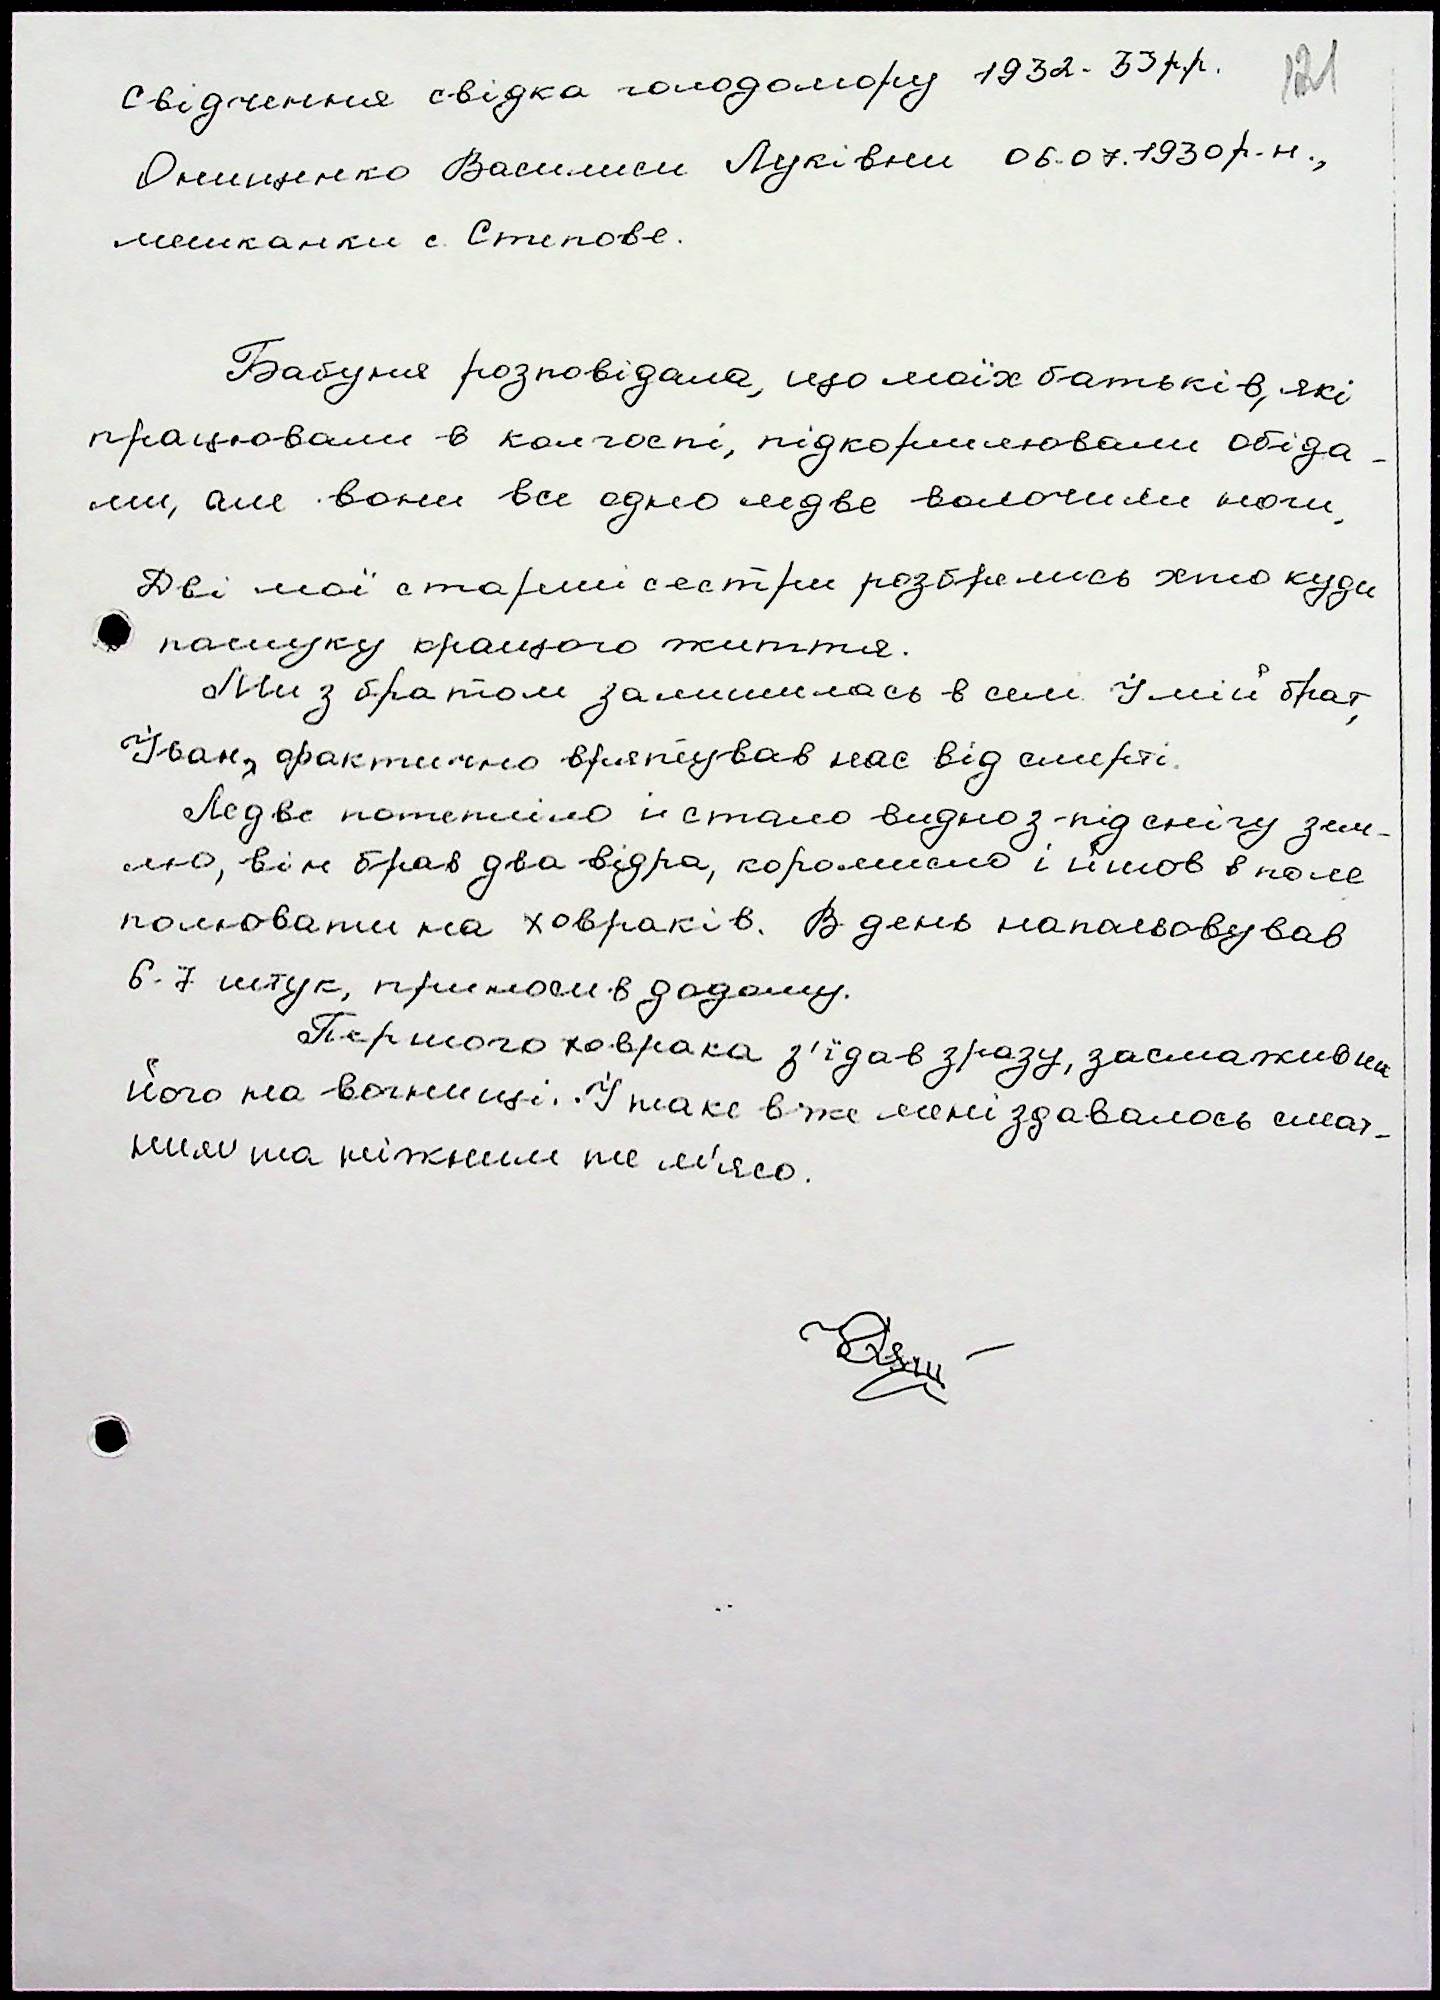 121
Свідчення свідка голодомору 1932-33 р.р.
Онищенко Василиси Луківни 06.07.1930 р.н.,
мешканки с. Степове.
Бабуня розповідала, що моїх батьків, які
працювали в колгоспі, підкормлювали обіда-
ми, але вони все одно ледве волочили ноги.
Дві мої старші сестри розбрелись хто куди
пошуку кращого життя.
Ми з братом залишилась в селі. І мій брат,
Іван, фактично врятував нас від смерті.
Ледве потепліло й стало видно з-під снігу зем-
лю, він брав два відра, коромисло і йшов в поле
полювати на ховраків. В день напольовував
6-7 штук, приносив додому.
Першого ховрака з'їдав зразу, засмаживши
його на вогнищі. І таке вже мені здавалось смат-
ним та ніжним те м'ясо.